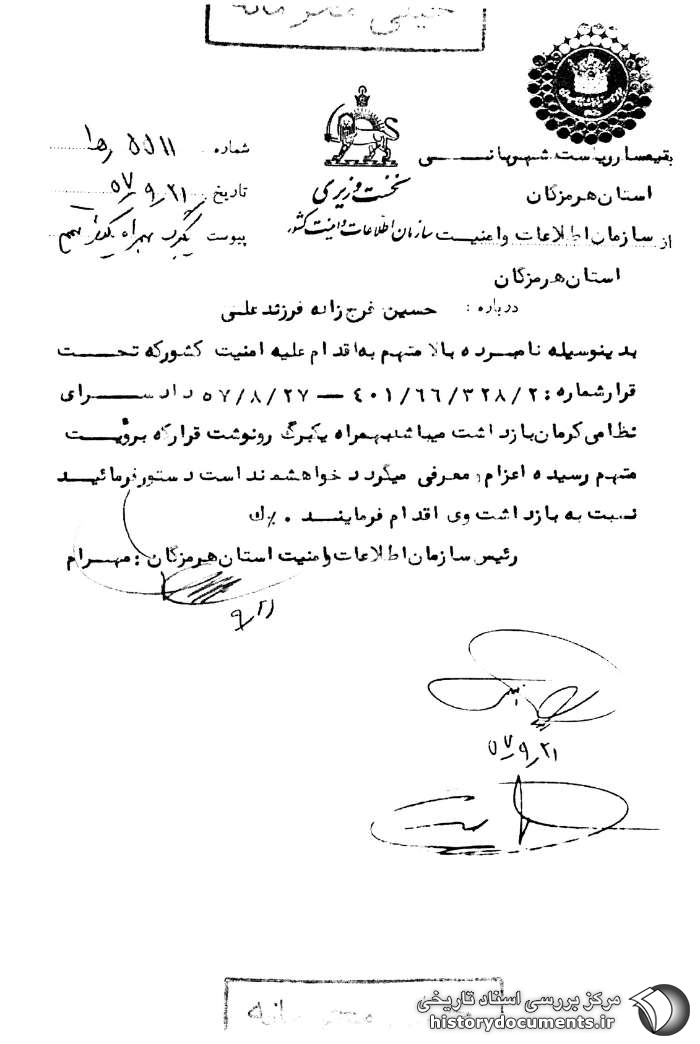 خیلی محرمانه
شماره ۵۵۱۱
تاریخ ۵۷/۹/۲۱
پیوست یکبرگ بهمراه یکنفر متهم
نخست وزیری
سازمان اطلاعات و امنیت کشور
ریاست شهربانی
استان هرمزگان
از سازمان اطلاعات وامنیت
استان هرمزگان
درباره : حسین فرج زاده فرزند علی
بدینوسیله نامبرده بالا متهم به اقدام علیه امنیت کشورکه تحت
قرارشماره : ۴۰۱/۶۶/۳۲۸/۲ — ۵۷/۸/۲۷ دادسرای
نظامی کرمان بازداشت میباشد بهمراه یکبرگ رونوشت قرارکه برؤیت
متهم رسیده اعزام و معرفی میگردد خواهشمند است دستورفرمائید
نسبت به بازداشت وی اقدام فرمایند . ک
رئیس سازمان اطلاعات وامنیت استان هرمزگان : مهرام
۹/۲۱
۵۷/۹/۲۱
محرمانه
مرکز بررسی اسناد تاریخی
historydocuments.ir